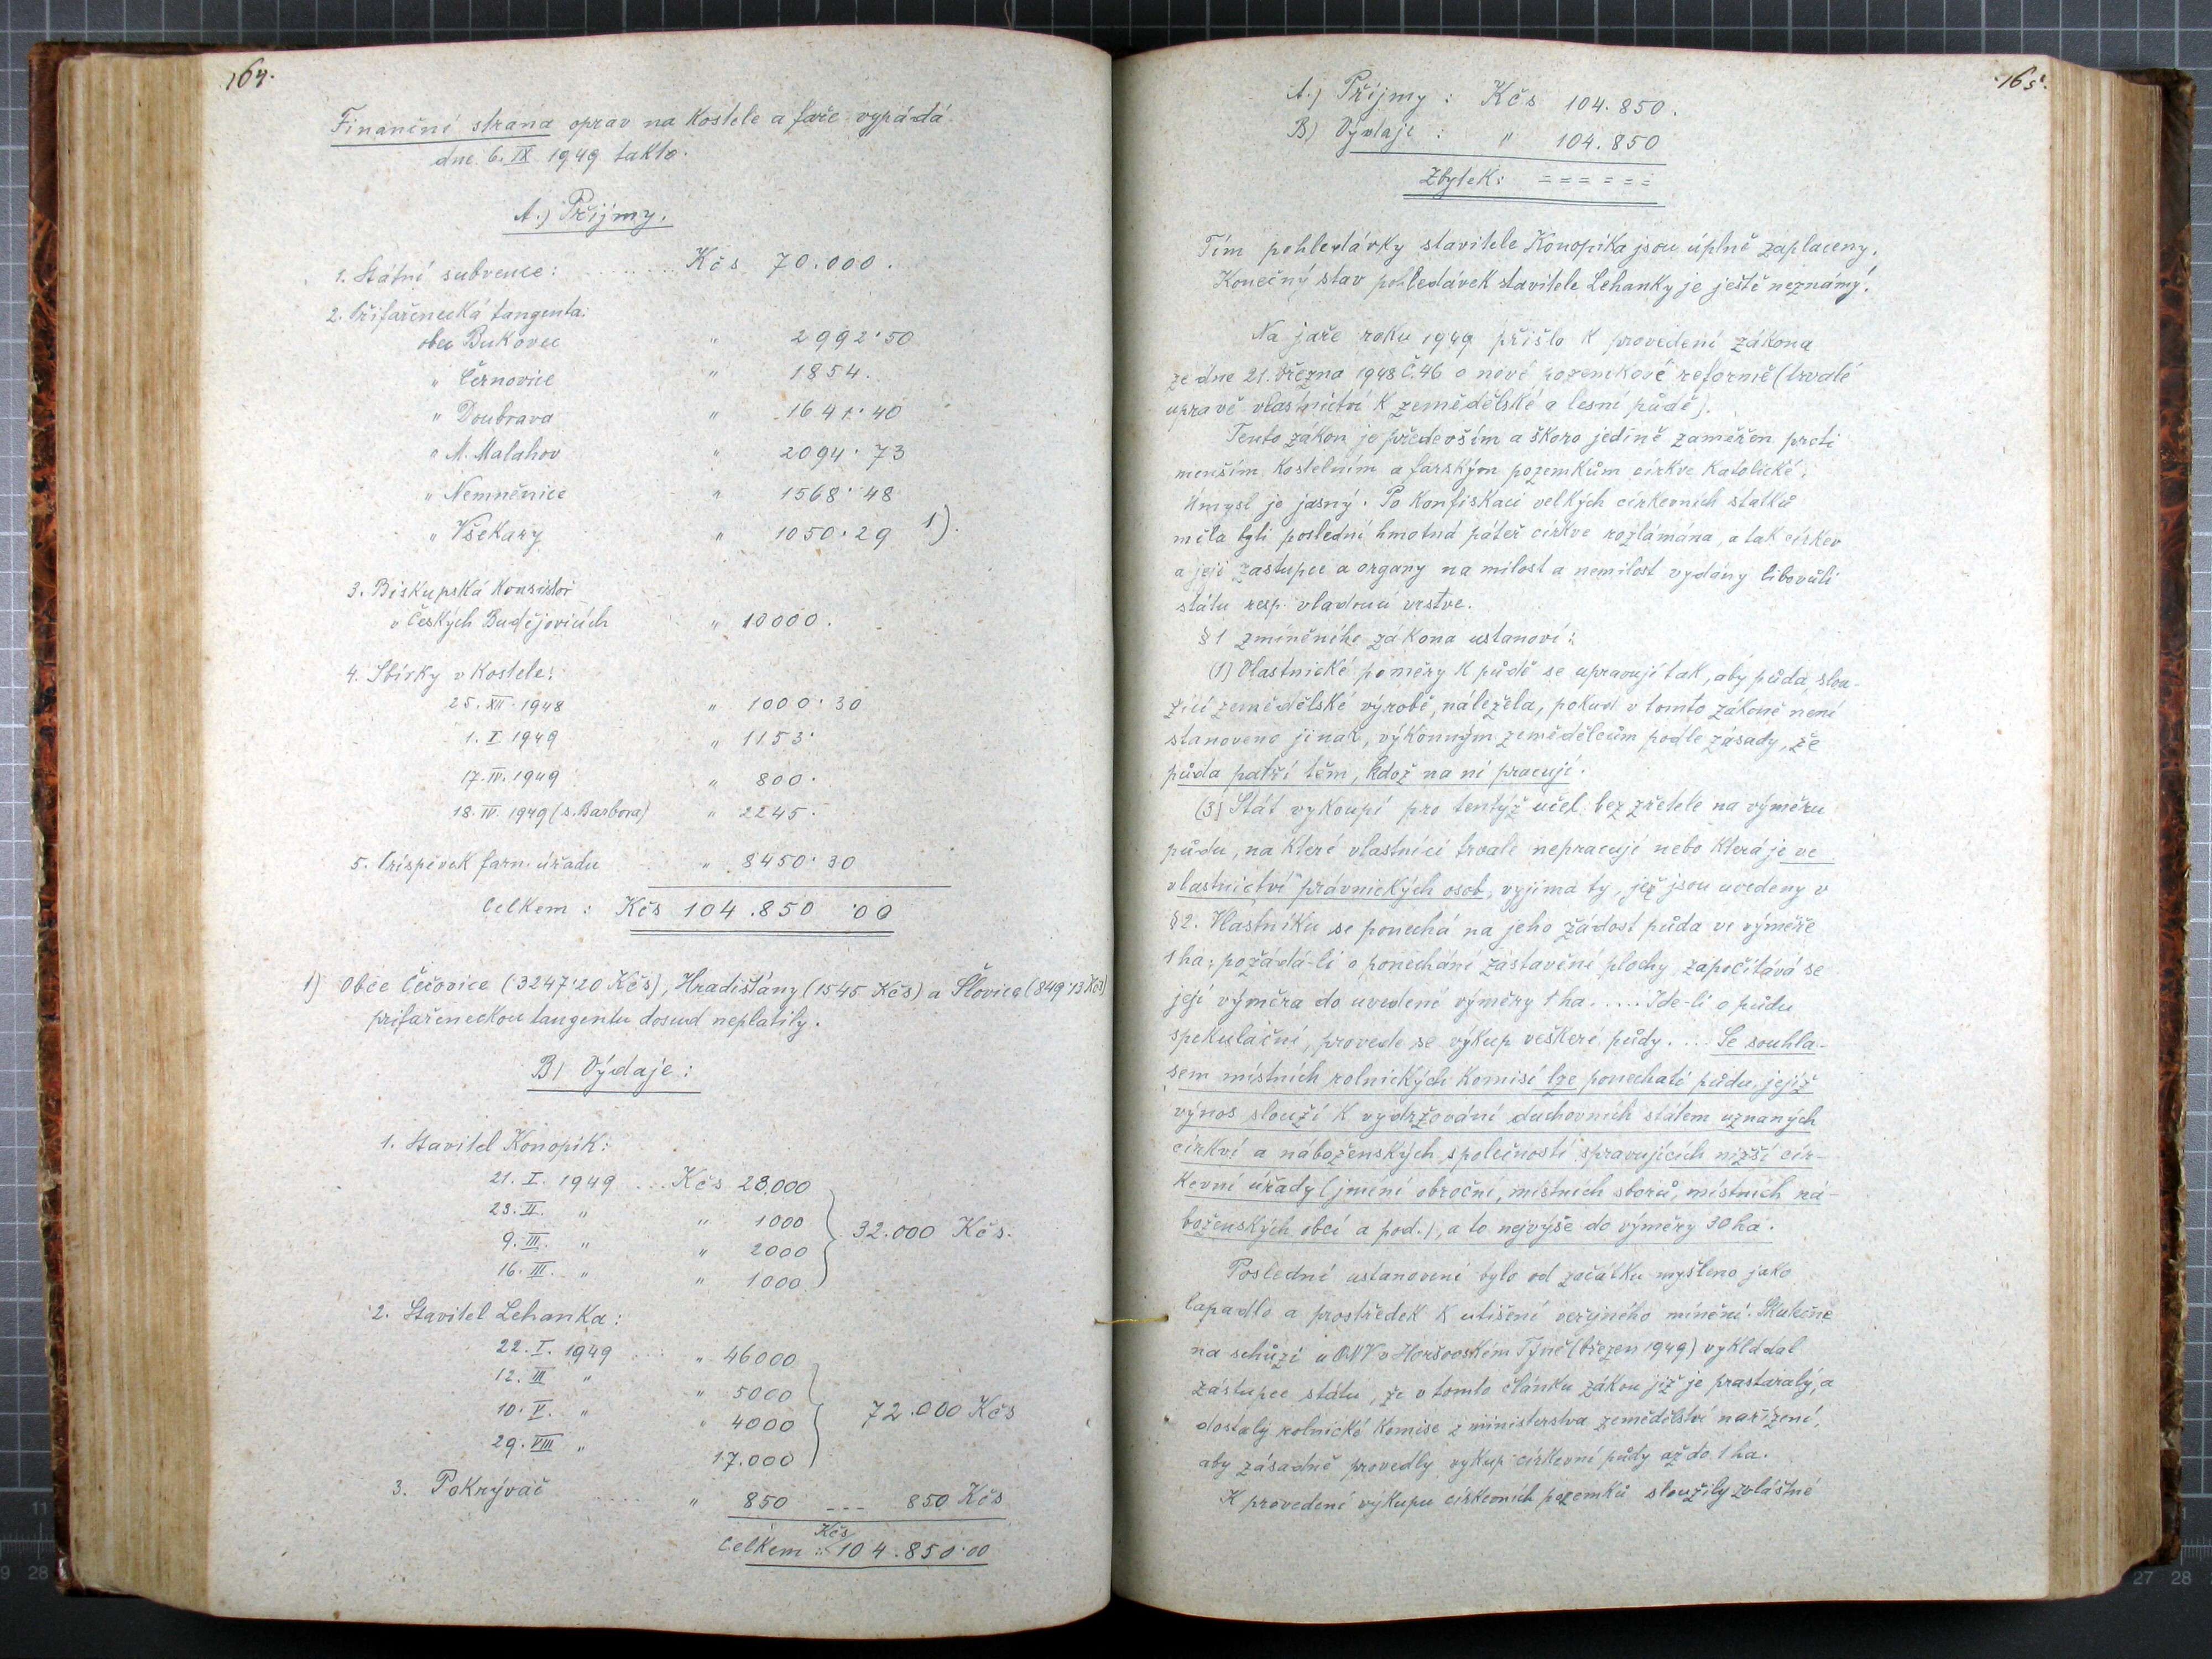 164.
Finanční strana oprav na Kostele a faře vypádá
dne 6. IX 1949 takto.
A.) Příjmy.
1. Státní subvence: ........ Kčs 70.000.
2. Přifařenecká tangenta:
obec Bukovec " 2992·50
" Černovice " 1854.
" Doubrava " 1641·40
" M. Malahov " 2094·73
" Nemněnice " 1568·48
" Všekary " 1050·29 1).
3. Biskupská Konsistoř
v Českých Budějovicích " 10000.
4. Sbírky v Kostele:
25. XII. 1948 " 1000·30
1. I 1949 " 1153·
17. IV. 1949 " 800·
18. IV. 1949 (s. Barbora) " 2245·
5. Príspěvek farn. úřadu " 8450·30
Celkem: Kčs 104.850·00
1) Obce Čečovice (3247·20 Kčs), Hradišťany (1545 Kčs) a Šlovice (849·13 Kčs)
prifařeneckou tangentu dosud neplatily.
B) Výdaje:
1. Stavitel Konopík:
21. I. 1949 ... Kčs 28.000
23. II. " " 1000
9. III. " " 2000 32.000 Kčs.
16. III. " " 1000
2. Stavitel Lehanka:
22. I. 1949 ... " 46000
12. III " " 5000
10. V. " " 4000 72.000 Kčs
29. VIII " 17.000
3. Pokrývač ..... " 850 --- 850 Kčs
Celkem: Kčs 104.850·00
165.
A.) Příjmy: Kčs 104.850.
B) Výdaje: " 104.850
Zbytek: ======
Tím pohledávky stavitele Konopíka jsou úplně zaplaceny.
Konečný stav pohledávek stavitele Lehanky je ještě neznámý.
Na jaře roku 1949 přišlo k provedení zákona
ze dne 21. března 1948 Č. 46 o nové pozemkové reformě (trvalé
upravě vlastnictví k zemědělské a lesní půdě).
Tento zákon je především a skoro jedině zaměřen proti
menším Kostelním a farským pozemkům církve Katolické.
Úmysl je jasný. Po Konfiskaci velkých církevních statků
měla byti poslední hmotná páteř církve rozlámána, a tak církev
a její zastupce a organy na milost a nemilost vydány libovůli
státu resp. vladnoucí vrstve.
§ 1 zmíněného zákona ustanoví:
(1) Vlastnické poměry k půdě se upravují tak, aby půda, slou-
žící zemědělské výrobě, náležela, pokud v tomto zákoně není
stanoveno jinak, výkonným zemědělcům podle zásady, že
půda patří těm, kdož na ní pracují.
(3) Stát vykoupí pro tentýž učel bez zřetele na výměru
půdu, na které vlastníci trvale nepracují nebo která je ve
vlastnictví právnických osob, vyjíma ty, jež jsou uvedeny v
§ 2. Vlastníku se ponechá na jeho žádost půda ve výměře
1 ha; požádá-li o ponechání zastavěné plochy započítává se
její výměra do uvedené výměry 1 ha..... Jde-li o půdu
spekulační, provede se výkup veškeré půdy.... Se souhla-
sem místních rolnických Komisí lze ponechati půdu, jejíž
výnos slouží k vydržování duchovních státem uznaných
církví a náboženských společností spravujících nižší cír-
kevní úřady (jmění obroční, místních sborů, místních ná-
boženských obcí a pod.), a to nejvýše do výměry 30 ha.
Poslední ustanovení bylo od začátku myšleno jako
lapadlo a prostředek k utišení veřejného mínění. Skutečne
na schůzi u ONV v Horšovském Týně (březen 1949) vykládal
zástupce státu, že v tomto článku zákon již je prastaralý, a
dostaly rolnické Komise z ministerstva zemědělství nařízení,
aby zásadně provedly vykup církevní půdy až do 1 ha.
K provedení výkupu církevních pozemků sloužily zvláštné